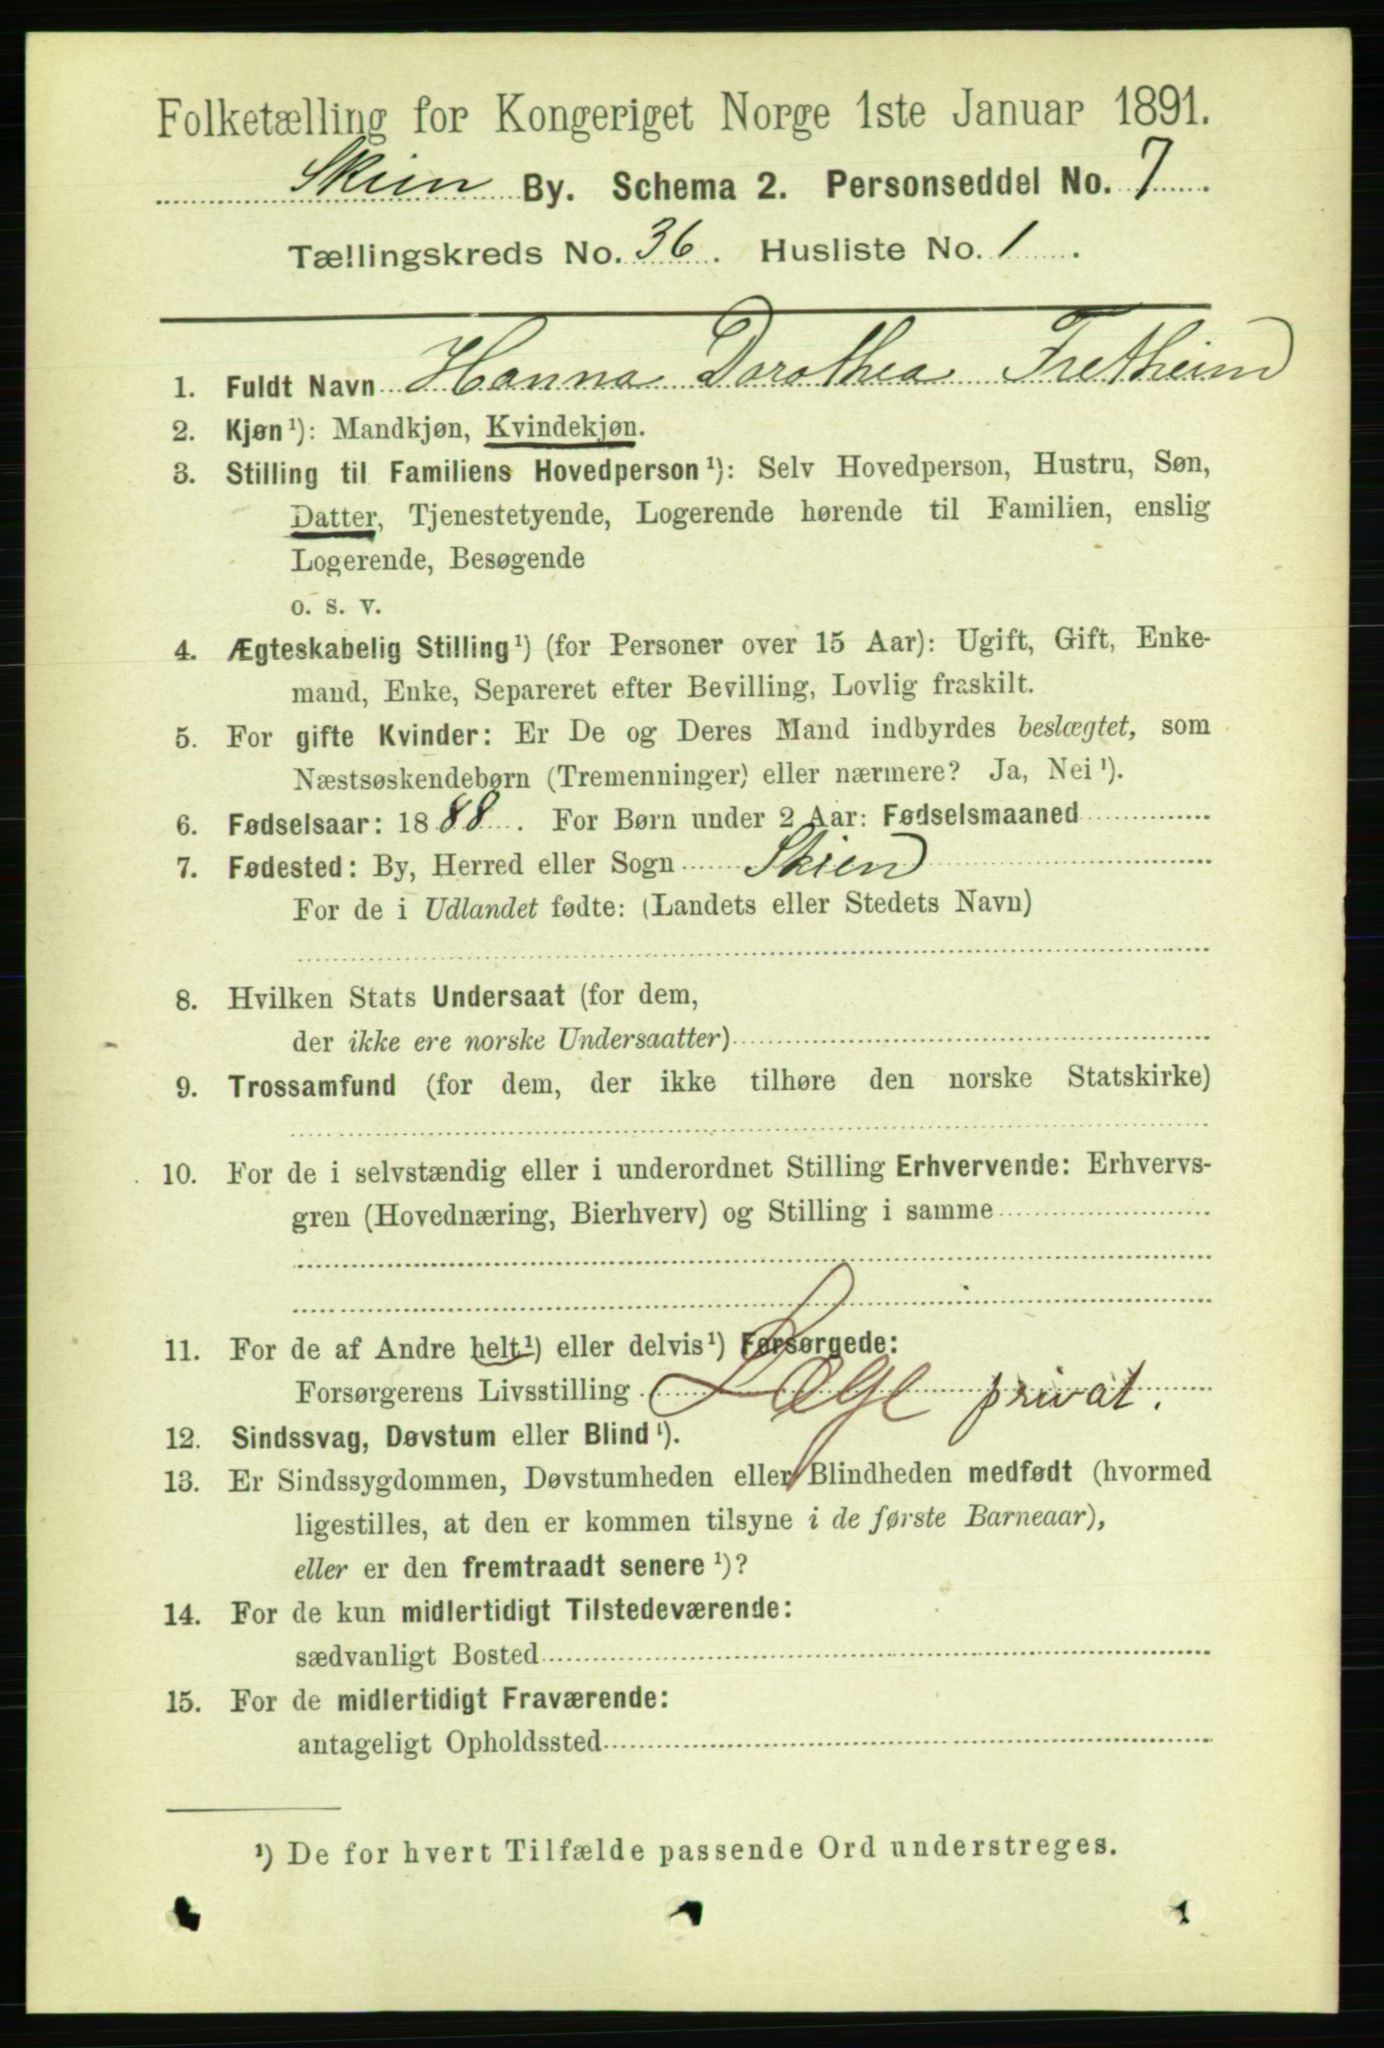 Folketælling for Kongeriget Norge 1ste Januar 1891.
Skien By. Schema 2. Personseddel No. 7
Tællingskreds No. 36. Husliste No. 1.
1. Fuldt Navn Hanna Dorothea Fretheim
2. Kjøn¹): Mandkjøn, Kvindekjøn.
3. Stilling til Familiens Hovedperson¹): Selv Hovedperson, Hustru, Søn,
Datter, Tjenestetyende, Logerende hørende til Familien, enslig
Logerende, Besøgende
o. s. v.
4. Ægteskabelig Stilling¹) (for Personer over 15 Aar): Ugift, Gift, Enke-
mand, Enke, Separeret efter Bevilling, Lovlig fraskilt.
5. For gifte Kvinder: Er De og Deres Mand indbyrdes beslægtet, som
Næstsøskendebørn (Tremenninger) eller nærmere? Ja, Nei¹).
6. Fødselsaar: 1888. For Børn under 2 Aar: Fødselsmaaned
7. Fødested: By, Herred eller Sogn Skien
For de i Udlandet fødte: (Landets eller Stedets Navn)
8. Hvilken Stats Undersaat (for dem,
der ikke ere norske Undersaatter)
9. Trossamfund (for dem, der ikke tilhøre den norske Statskirke)
10. For de i selvstændig eller i underordnet Stilling Erhvervende: Erhvervs-
gren (Hovednæring, Bierhverv) og Stilling i samme
11. For de af Andre helt¹) eller delvis¹) Forsørgede:
Forsørgerens Livsstilling Læge privat.
12. Sindssvag, Døvstum eller Blind¹).
13. Er Sindssygdommen, Døvstumheden eller Blindheden medfødt (hvormed
ligestilles, at den er kommen tilsyne i de første Barneaar),
eller er den fremtraadt senere¹)?
14. For de kun midlertidigt Tilstedeværende:
sædvanligt Bosted
15. For de midlertidigt Fraværende:
antageligt Opholdssted
¹) De for hvert Tilfælde passende Ord understreges.